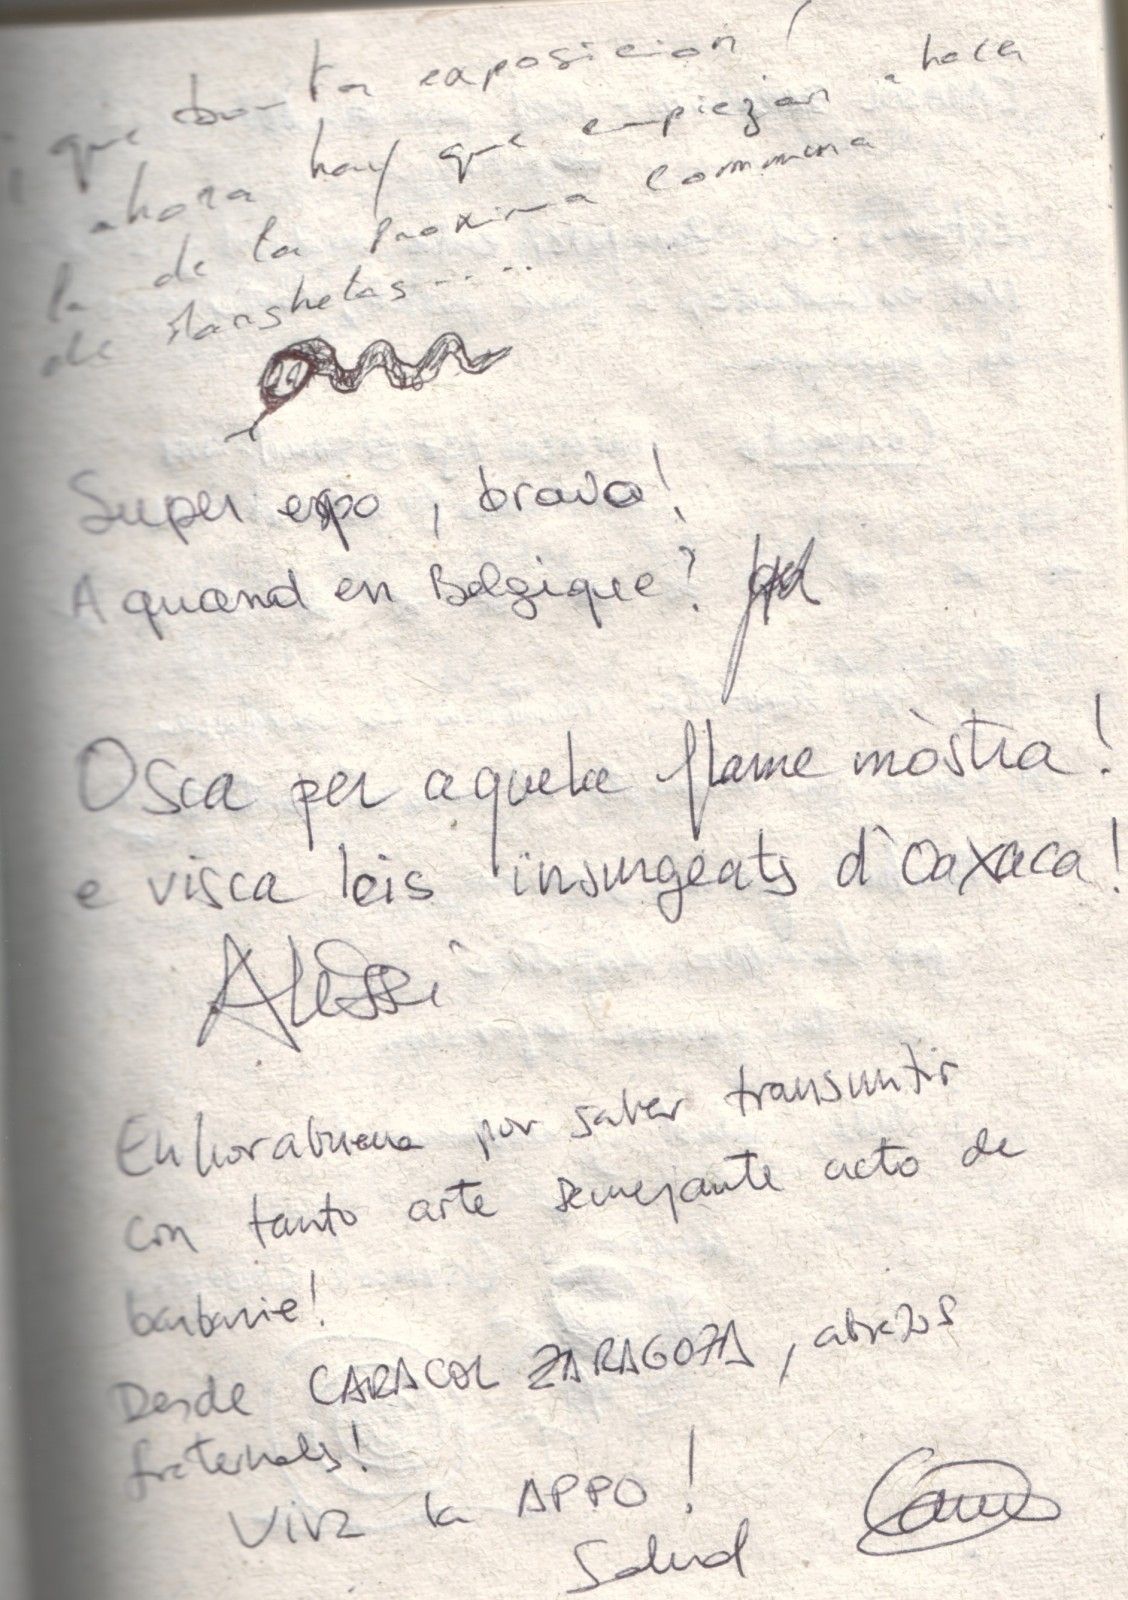 ¡ que bu- ta exposicion !
ahora hay que empiezan a hacer
la de la proxima communa
de Manshetas.....
Super expo, bravo!
A quand en Belgique?
Osca per aquela flame mòstra!
e visca leis insurgeats d'Oaxaca!
Alessi
Enhorabuena por saber transmitir
con tanto arte semejante acto de
barbarie!
Desde CARACOL ZARAGOZA, abrazos
fraternales!
Viva la APPO!
Salud